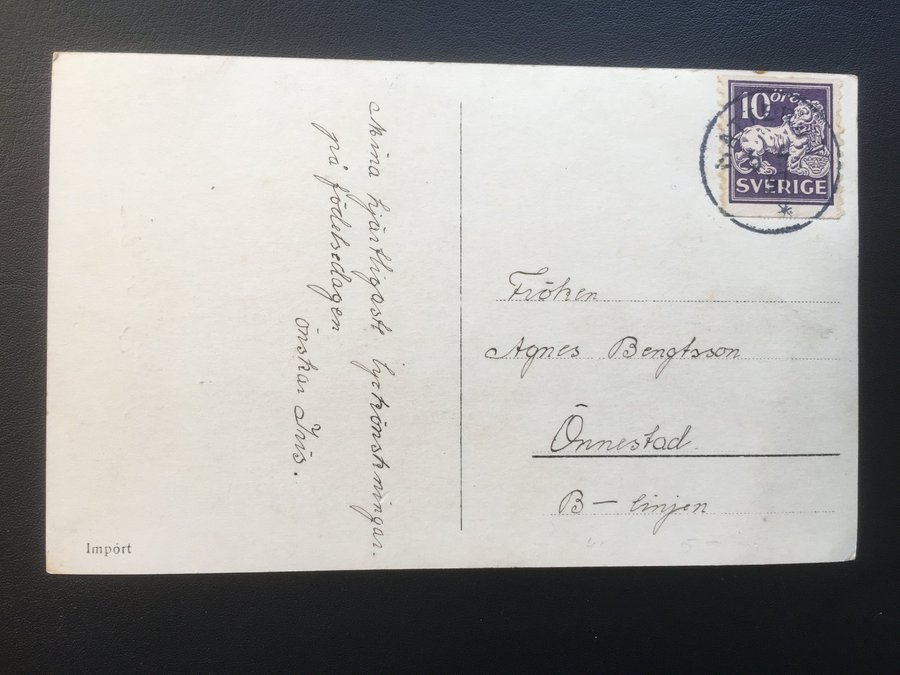 Mina hjärtligaste lyckönskningar
på födelsedagen
önskar Iris.
10 öre
SVERIGE
Fröken
Agnes Bengtsson
Önnestad
B – linjen
Impórt